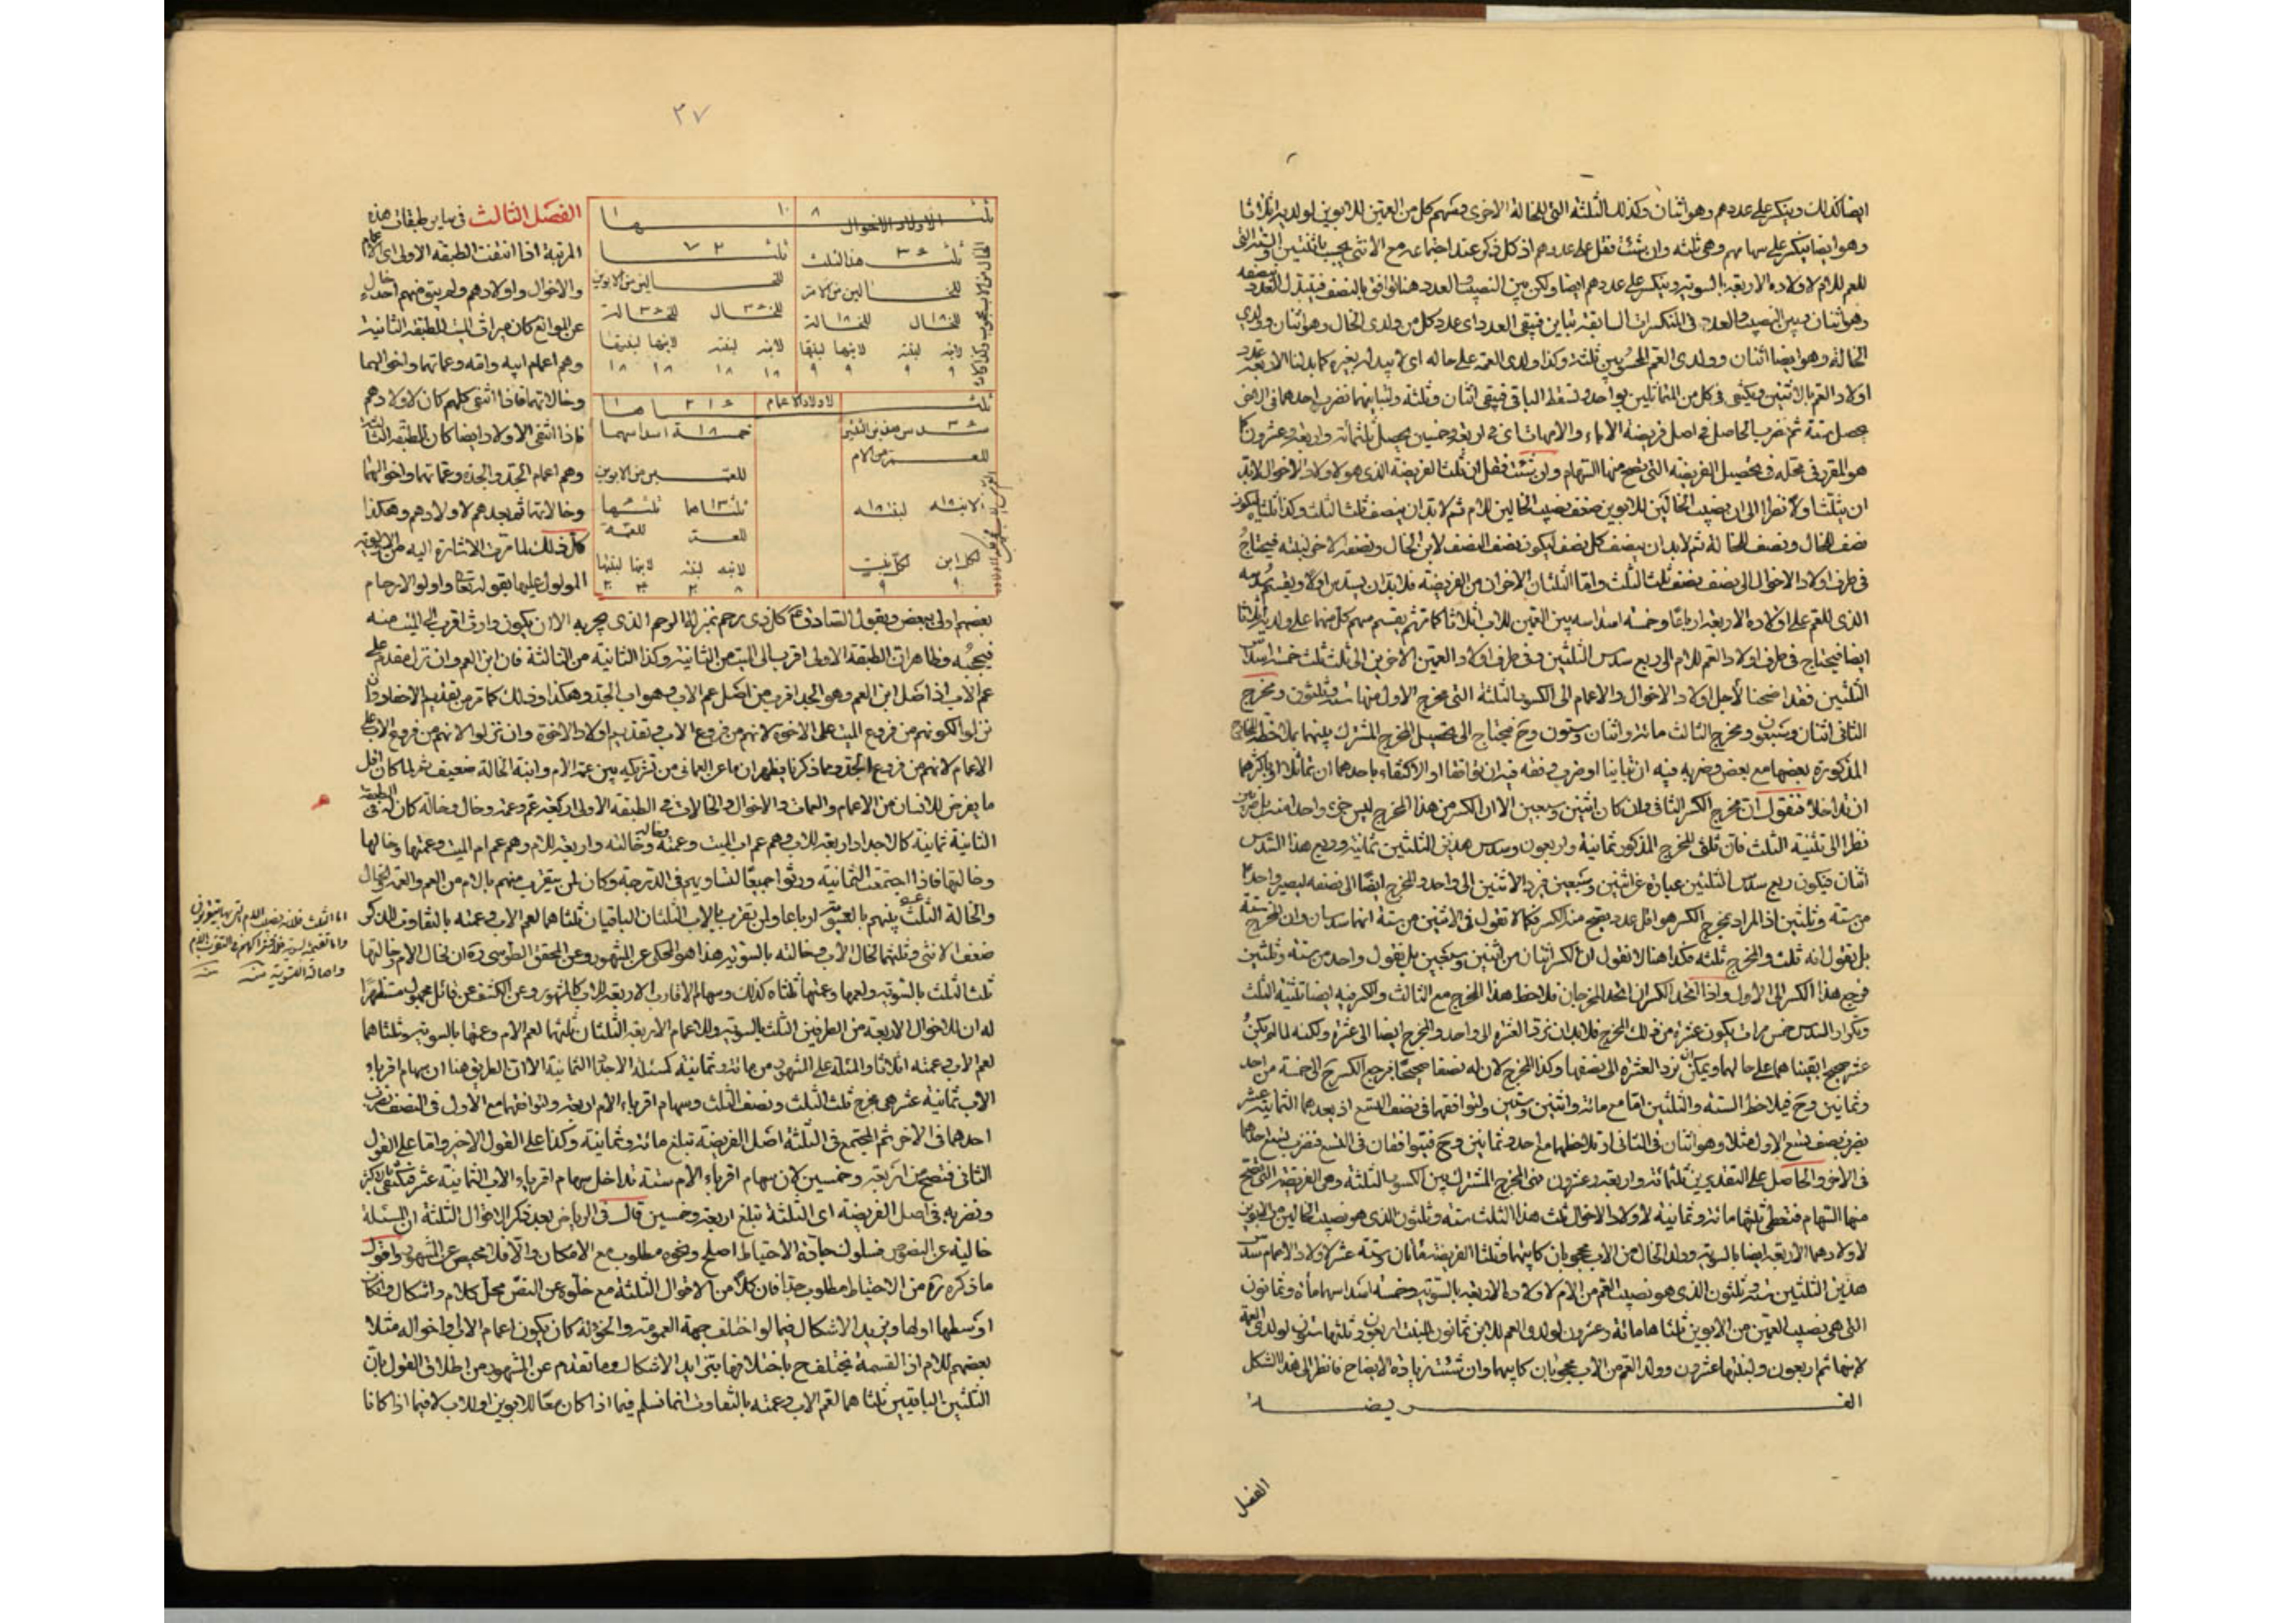 ايضا كذلك وينكسر على عددهم وهو اثنان وكذلك الثلثة التى للخالة الاخرى وسهم كل من العمتين للابوين لولديه اثلاثا
وهو ايضا ينكسر على سهامهم وهى ثلثه وان شئت فقل على عددهم اذ كل ذكر عند اجتماعه مع الانثى يحسب باثنتين والستة التى
للعم للام لاولاده الاربعة بالسوية وينكسر على عددهم ايضا ولكن بين النصيب والعدد هنا توافق بالنصف فيبدل العدد بنصفه
وهو اثنان وبين النصيب والعدد فى المنكسرات السابقة تباين فيبقى العدد اى عدد كل من ولدى الخال وهو اثنان وولدى
الخالة وهو ايضا اثنان وولدى العم المحسوبين ثلثة وكذا ولدى العمة على حاله اى لا يبدل بغيره كما بدلنا الاربعة عدد
اولاد العم بالاثنين ويكتفى فى كل من المتماثلين بواحد ويسقط الباقى فيبقى اثنان وثلثة ولتباينهما نضرب احدهما فى الاخر
يحصل ستة ثم نضرب الحاصل فى اصل فريضة الاباء والامهات اى فى اربعة وخمسين يحصل ثلثمائة واربعة وعشرون كما
هو المقرر فى محله فى تحصيل الفريضة التى يصح منها السهام وان شئت فقل ان ثلث الفريضة الذى هو لاولاد الاخوال لابد
ان يثلث اولا نظرا الى ان نصيب الخالين للابوين ضعف نصيب الخالين للام ثم لابد ان ينصف ثلث الثلث وكذا ثلثاه ليكون
نصف للخال ونصف للخالة ثم لابد ان ينصف كل نصف ليكون نصف النصف لابن الخال ونصفه الاخر لبنته فيحتاج
فى طرف اولاد الاخوال الى نصف نصف ثلث الثلث واما الثلثان الاخران من الفريضة فلابد ان يسدس اولا ويقسم سدسه
الذى للعم على اولاده الاربعة ارباعا وخمسة اسداسه بين العمتين للاب اثلاثا كما ثم يقسم سهم كل منهما على ولديه اثلاثا
ايضا فيحتاج فى طرف اولاد العم للام الى ربع سدس الثلثين وفى طرف اولاد العمتين الاخرين الى ثلث ثلث خمسة اسداس
الثلثين فقد احتجنا لأجل اولاد الاخوال والاعمام الى الكسور الثلثة التى مخرج الاول منها ستة وثلثون ومخرج
الثانى اثنان وسبعون ومخرج الثالث مائة واثنان وستون وح نحتاج الى تحصيل المخرج المشترك بينهما بملاحظة المخارج
المذكورة بعضها مع بعض وضربه فيه ان تباينا او ضرب وفقه فيه ان توافقا او الاكتفاء باحدهما ان تماثلا او باكثرهما
ان تداخلا فنقول ان مخرج الكسر الثانى وان كان اثنين وسبعين الا ان الكسر من هذا المخرج ليس جزء واحدا منه بل جزئين
نظرا الى تثنية الثلث فان ثلثى المخرج المذكور ثمانية واربعون وسدس هذين الثلثين ثمانية وربع هذا السدس
اثنان فيكون ربع سدس الثلثين عبارة عن اثنين وسبعين فيرد الاثنين الى واحد والمخرج ايضا الى نصفه ليصير واحدا
من ستة وثلثين اذ المراد بمخرج الكسر هو اقل عدد يصح منه الكسر فكما لا تقول فى الاثنين من ستة انهما سدسان وان المخرج ستة
بل يقول انه ثلث والمخرج ثلثه فكذا هنا لا تقول ان الكسر اثنان من اثنين وسبعين بل يقول واحد من ستة وثلثين
فرجع هذا الكسر الى الاول واذا اتحد الكسران اتحد المخرجان فلاحظ هذا المخرج مع الثالث والكسر فيه ايضا تثنية الثلث
وتكرار السدس خمس مرات يكون عشرة من ذلك المخرج فلابد ان نرد العشرة الى واحد والمخرج ايضا الى عشره ولكنه لما لم يكن
عشر صحيح ابقيناهما على حالهما ويمكن ان نرد العشرة الى نصفها وكذا المخرج لان له نصفا صحيحا فرجع الكسر ح الى خمسة من احد
وثمانين وح فيلاحظ الستة والثلثين اما مع مائة واثنين وستين ولتوافقهما فى نصف التسع اذ يعدهما الثمانية عشر
نضرب نصف تسع الاول مثلا وهو اثنان فى الثانى او نلاحظها مع احد وثمانين وح فيتوافقان فى التسع فنضرب تسع احدهما
فى الاخر والحاصل على التقديرين ثلثمائة واربعة وعشرون فهى المخرج المشترك بين الكسور الثلثة وهى الفريضة التى تصح
منها السهام فنعطى ثلثها مائة وثمانية لاولاد الاخوال ثلث هذا الثلث ستة وثلثون الذى هو نصيب الخالين من الابوين
لاولادهما الاربعة ايضا بالسوية وولد الخال من الاب محجوبان كابيهما وثلثا الفريضة مأتان وستة عشر لاولاد الاعمام سدس
هذين الثلثين ستة وثلثون الذى هو نصيب العم من الام لاولاده الاربعة بالسوية وخمسة اسداسها مأة وثمانون
التى هى نصيب العمتين من الابوين ثلثاها مائة وعشرون لولدى العم للابن ثمانون للبنت اربعون وثلثها ستون لولدى العمة
لابنها اربعون ولبنتها عشرون وولد العم من الاب محجوبان كابيهما وان شئت زيادة الايضاح فانظر الى هذا الشكل
الفريضة
الفصل
٣٧
ثلثها ١٠٨
لاولاد الاخوال
ثلث ٣٦ هذا الثلث
ثلثا ٧٢
للخالين من الام
للخالين من الابوين
للخال ١٨ للخالة ١٨
للخال ٣٦ للخالة ٣٦
لابنه لبنته لابنها لبنتها
لابنه لبنته لابنها لبنتها
٩ ٩ ٩ ٩
١٨ ١٨ ١٨ ١٨
ثلثاها ٢١٦
لاولاد الاعمام
سدس هذين الثلثين ٣٦
خمسة اسداسهما ١٨٠
للعم من الام
للعمتين من الابوين
لابنيه ١٨ لبنتيه ١٨
ثلثاها ثلثها
للعم للعمة
لكل ابن لكل بنت
لابنه لبنته لابنها لبنتها
٩ ٩
الفصل الثالث فى ساير طبقات هذه
المرتبة اذا انتفت الطبقة الاولى اى الاعمام
والاخوال واولادهم ولم يبق منهم احد خال
عن الموانع كان ميراث الميت للطبقة الثانية
وهم اعمام ابيه وامه وعماتهما واخوالهما
وخالاتهما فاذا انتفى كلهم كان لاولادهم
فاذا انتفى الاولاد ايضا كان للطبقة الثالثة
وهم اعمام الجد والجدة وعماتهما واخوالهما
وخالاتهما ثم بعدهم لاولادهم وهكذا
كل ذلك لما مرت الاشارة اليه من الاولوية
المدلول عليها بقوله تعالى واولو الارحام
بعضهم اولى ببعض وبقول الصادق ع كل ذى رحم بمنزلة الرحم الذى يجر به الا ان يكون وارث اقرب الى الميت منه
فيحجبه وظاهر ان الطبقة الاولى اقرب الى الميت من الثانية وكذا الثانية من الثالثة فان ابن العم وان نزل مقدم على
عم الاب اذ اصل ابن العم وهو الجد اقرب من اصل عم الاب وهو اب الجد وهكذا وذلك كما مر من تقديم الاحفاد وان
نزلوا لكونهم من فروع الميت على الاخوة لانهم من فروع الاب وتقديم اولاد الاخوة وان نزلوا لانهم من فروع الاب على
الاعمام لانهم من فروع الجد ومما ذكرنا يظهر ان ما عن العمانى من تشريكه بين عمة الام وابنة الخالة ضعيف ثم لما كان اقل
ما يفرض للانسان من الاعمام والعمات والاخوال والخالات فى الطبقة الاولى اربعة عم وعمة وخال وخالة كان له فى الطبقة
الثانية ثمانية كالاجداد اربعة للاب وهم عم اب الميت وعمته وخاله وخالته واربعة للام وهم عم ام الميت وعمتها وخالها
وخالتها فاذا اجتمعت الثمانية ورثوا جميعا لتساويهم فى الدرجة وكان لمن يتقرب منهم بالام من العم والعمة والخال
والخالة الثلث بينهم بالسوية ارباعا ولمن يتقرب بالاب الثلثان الباقيان ثلثاهما لعم الاب وعمته بالتفاوت للذكر
ضعف الانثى وثلثهما لخال الاب وخالته بالسوية هذا هو المحكى عن المشهور وعن المحقق الطوسى ره ان لخال الام وخالتها
ثلث الثلث بالسوية ولعمها وعمتها ثلثاه كذلك وسهام الاقارب الاربعة للاب كالمشهور وعن الكشف عن قائل مجهول مستظهرا
له ان للاخوال الاربعة من الطرفين الثلث بالسوية وللاعمام الاربعة الثلثان ثلثهما لعم الام وعمتها بالسوية وثلثاهما
لعم الاب وعمته اثلاثا والمسئلة على المشهور من مائة وثمانية كمسئلة الاجداد الثمانية الا ان الطريق هنا ان سهام اقرباء
الاب ثمانية عشر هى مخرج ثلث الثلث ونصف الثلث وسهام اقرباء الام اربعة ولتوافقها مع الاول فى النصف نضرب
احدهما فى الاخر ثم المجتمع فى الثلثة اصل الفريضة تبلغ مائة وثمانية وكذا على القول الاخير واما على القول
الثانى فتصح من اربعة وخمسين لان سهام اقرباء الام ستة تداخل سهام اقرباء الاب الثمانية عشر فنكتفى بالاكثر
ونضربه فى اصل الفريضة اى الثلثة تبلغ اربعة وخمسين قال فى الرياض بعد ذكر الاقوال الثلثة ان المسئلة
خالية عن النصوص فسلوك جادة الاحتياط اصلح ونحوه مطلوب مع الامكان والا فلا محيص عن المشهور واقول
ما ذكره ره من الاحتياط مطلوب جدا فان كلا من الاقوال الثلثة مع خلوه عن النص محل كلام واشكال وان كان
اوسطها اولها ويزيد الاشكال فيما لو اختلف جهة العمومة والخؤلة كان يكون اعمام الاب واخواله مثلا
بعضهم للام اذ القسمة تختلف ح باختلافها يتزايد الاشكال وما تقدم عن المشهور من اطلاق القول بان
الثلثين الباقيين ثلثاهما لعم الاب وعمته بالتفاوت انما نسلم فيما اذا كان معا للابوين او للاب لا فيما اذا كانا